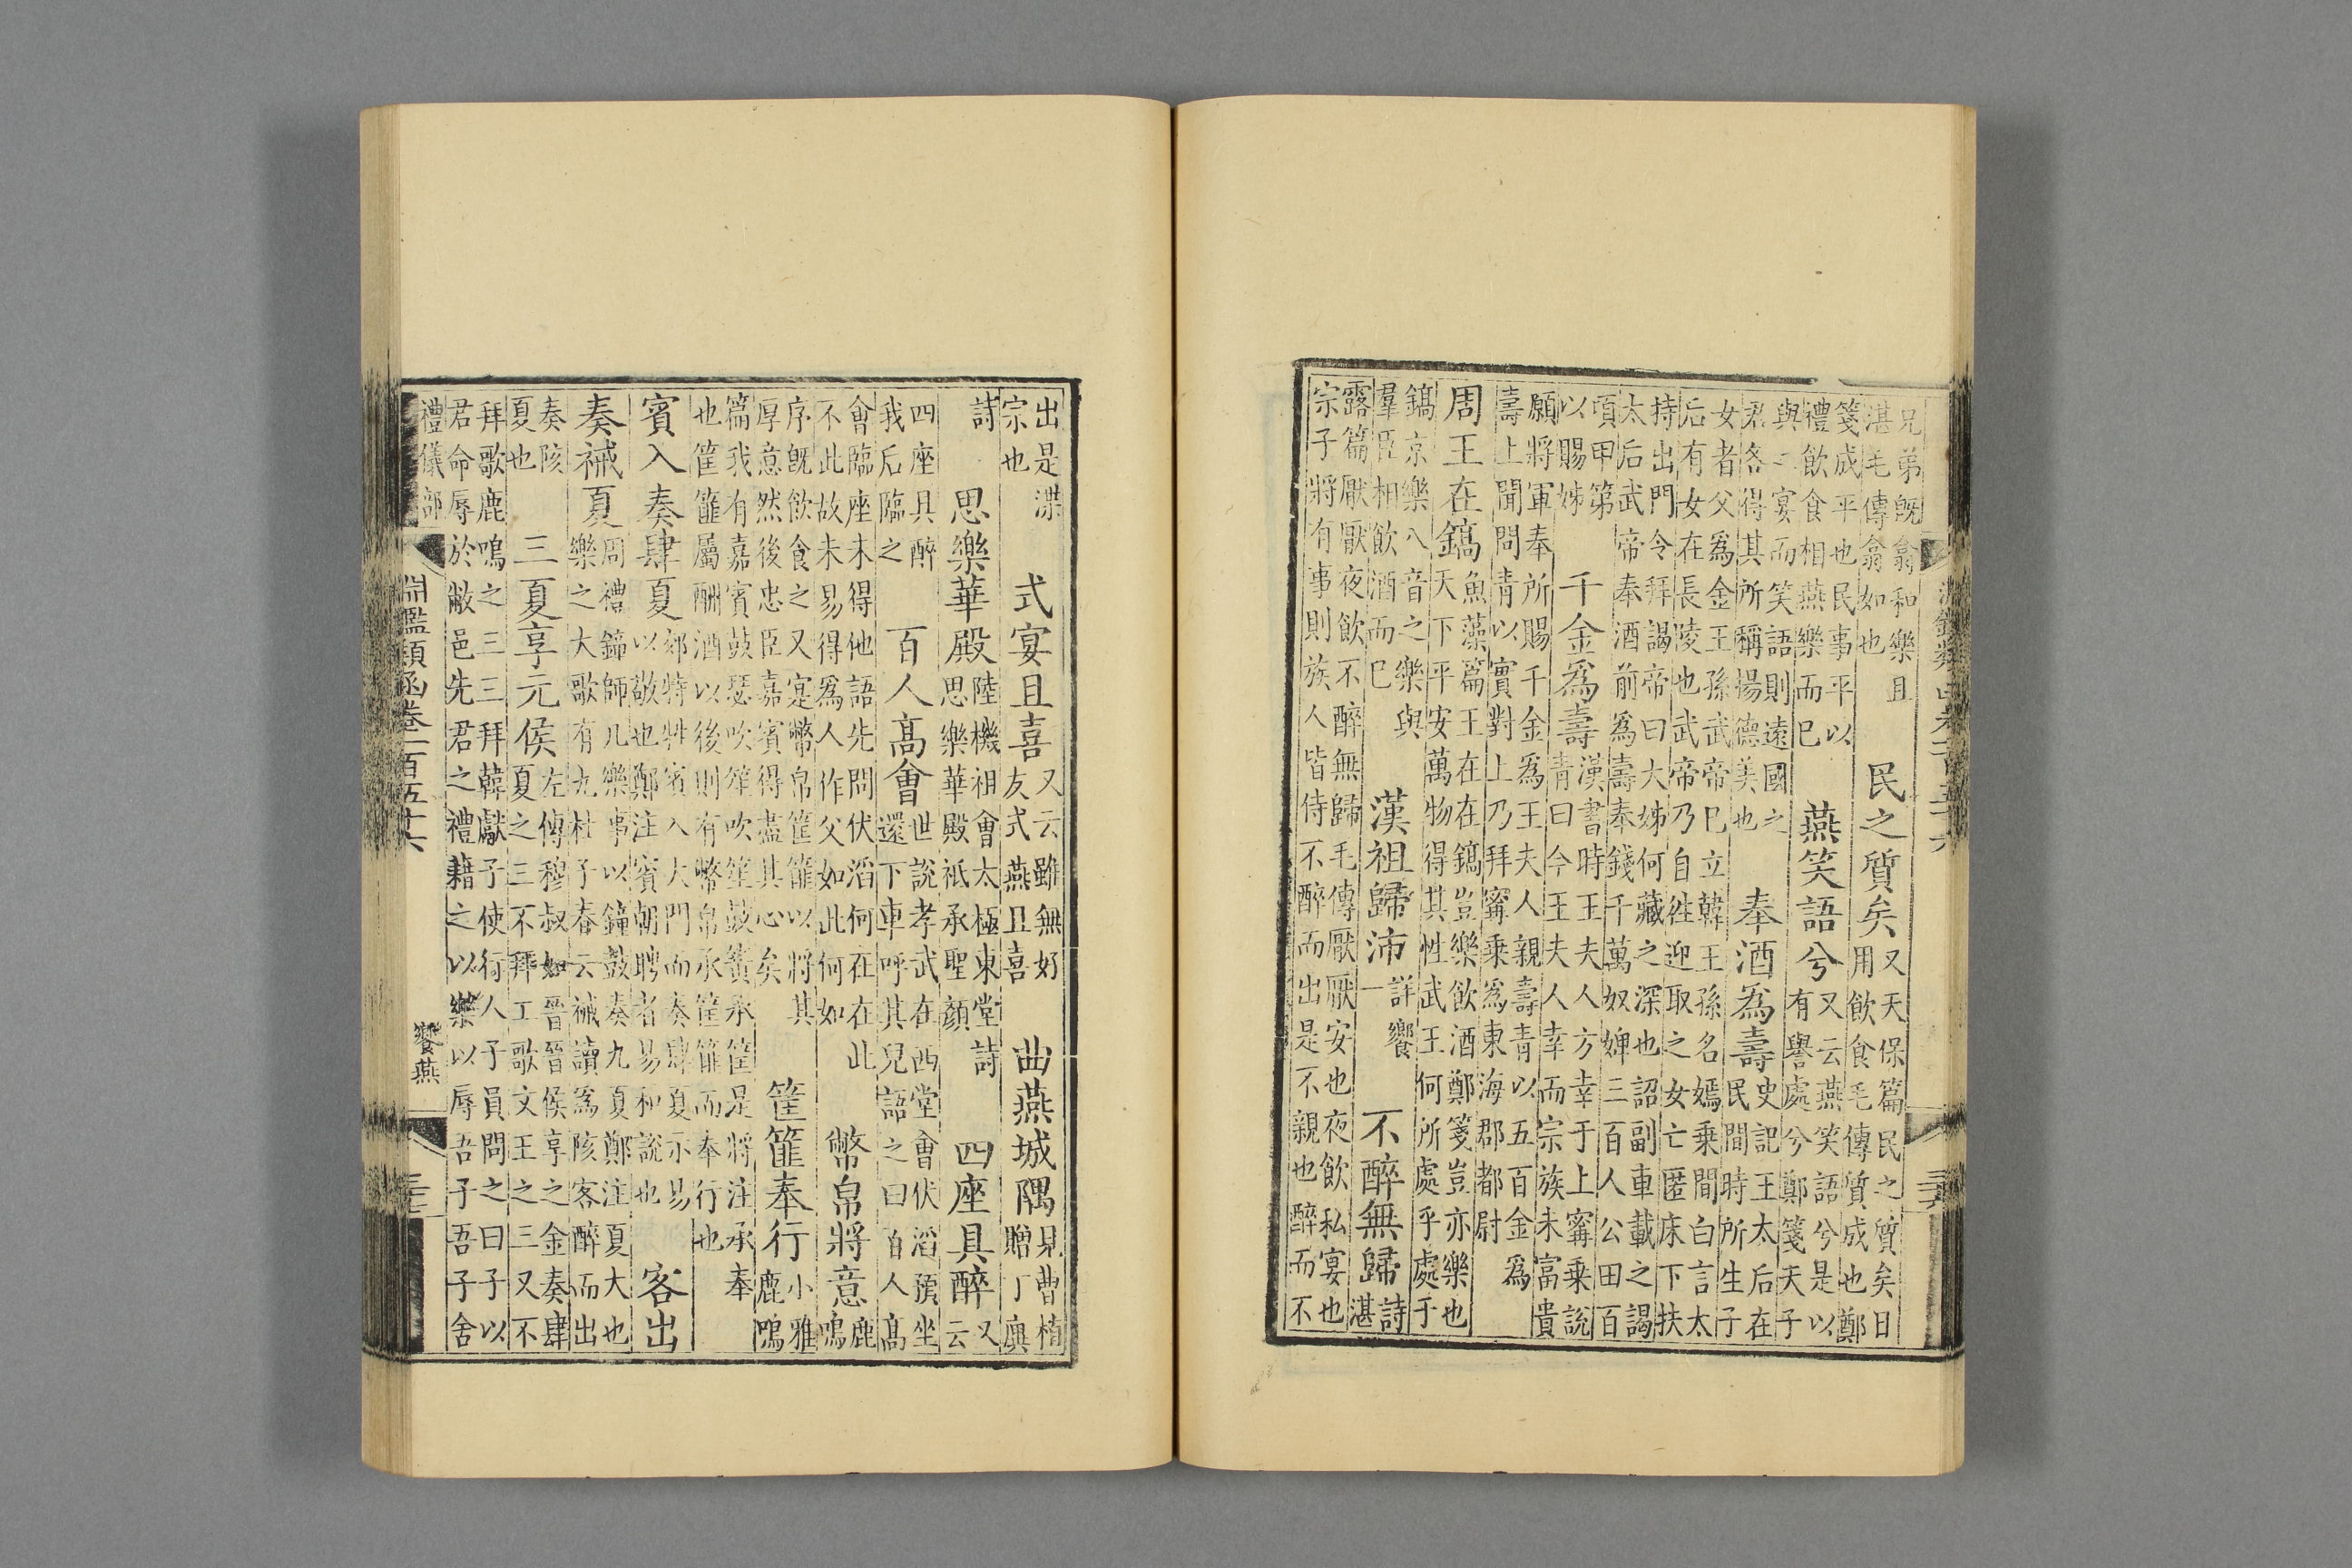 淵鑑類函卷一百五十六
兄弟既翕和樂且
湛毛傳翕如也
民之質矣
又天保篇民之質矣日
用飲食毛傳質成也鄭
箋成平也民事平以
禮飲食相燕樂而已
燕笑語兮
又云燕笑語兮是以
有譽處兮鄭箋天子
與之宴而笑語則遠國之
君各得其所稱揚德美也
奉酒爲壽
史記王太后在
民間時所生子
女者父爲金王孫武帝已立韓王孫名嫣乘間白言太
后有女在長陵也武帝乃自往迎取之女亡匿床下扶
持出門令拜謁帝曰大姊何藏之深也詔副車載之謁
太后武帝奉酒前爲壽奉錢千萬奴婢三百人公田百
頃甲第
以賜姊
千金爲壽
漢書時王夫人方幸于上寗乗說
青曰今王夫人幸而宗族未富貴
願將軍奉所賜千金爲王夫人親壽青以五百金爲
壽上聞問青以實對上乃拜寗乗爲東海郡都尉
周王在鎬
魚藻篇王在在鎬豈樂飲酒鄭箋豈亦樂也
天下平安萬物得其性武王何所處乎處于
鎬京樂八音之樂與
羣臣相飲酒而已
漢祖歸沛
詳饗
一
不醉無歸
詩
湛
露篇厭厭夜飲不醉無歸毛傳厭厭安也夜飲私宴也
宗子將有事則族人皆侍不醉而出是不親也醉而不
出是渫
宗也
式宴且喜
又云雖無好
友式燕且喜
曲燕城隅
見曹植
贈丁廙
詩
思樂華殿
陸機祖會太極東堂詩
思樂華殿祗承聖顏
四座具醉
又
云
四座具醉
我后臨之
百人高會
世說孝武在西堂會伏滔預坐
還下車呼其兒語之曰百人高
會臨座未得他語先問伏滔何在在此
不此故未易得爲人作父如此何如
幣帛將意
鹿
鳴
序既飲食之又寔幣帛筐篚以將其
厚意然後忠臣嘉賓得盡其心矣
筐篚奉行
小雅
鹿鳴
篇我有嘉賓鼓瑟吹笙吹笙鼓簧承筐是將注承奉
也筐篚屬酬酒以後則有幣帛承筐篚而奉行也
賓入奏肆夏
郊特牲賓入大門而奏肆夏示易
以敬也鄭注賓朝聘者易和說也
客出
奏祴夏
周禮鐘師凡樂事以鐘鼓奏九夏鄭注夏大也
樂之大歌有九杜子春云祴讀爲陔客醉而出
奏陔
夏也
三夏享元侯
左傳穆叔如晉晉侯享之金奏肆
夏之三不拜工歌文王之三又不
拜歌鹿鳴之三三拜韓獻子使行人子員問之曰子以
君命辱於敝邑先君之禮藉之以樂以辱吾子吾子舍
禮儀部
淵鑑類函卷一百五十六
饗燕